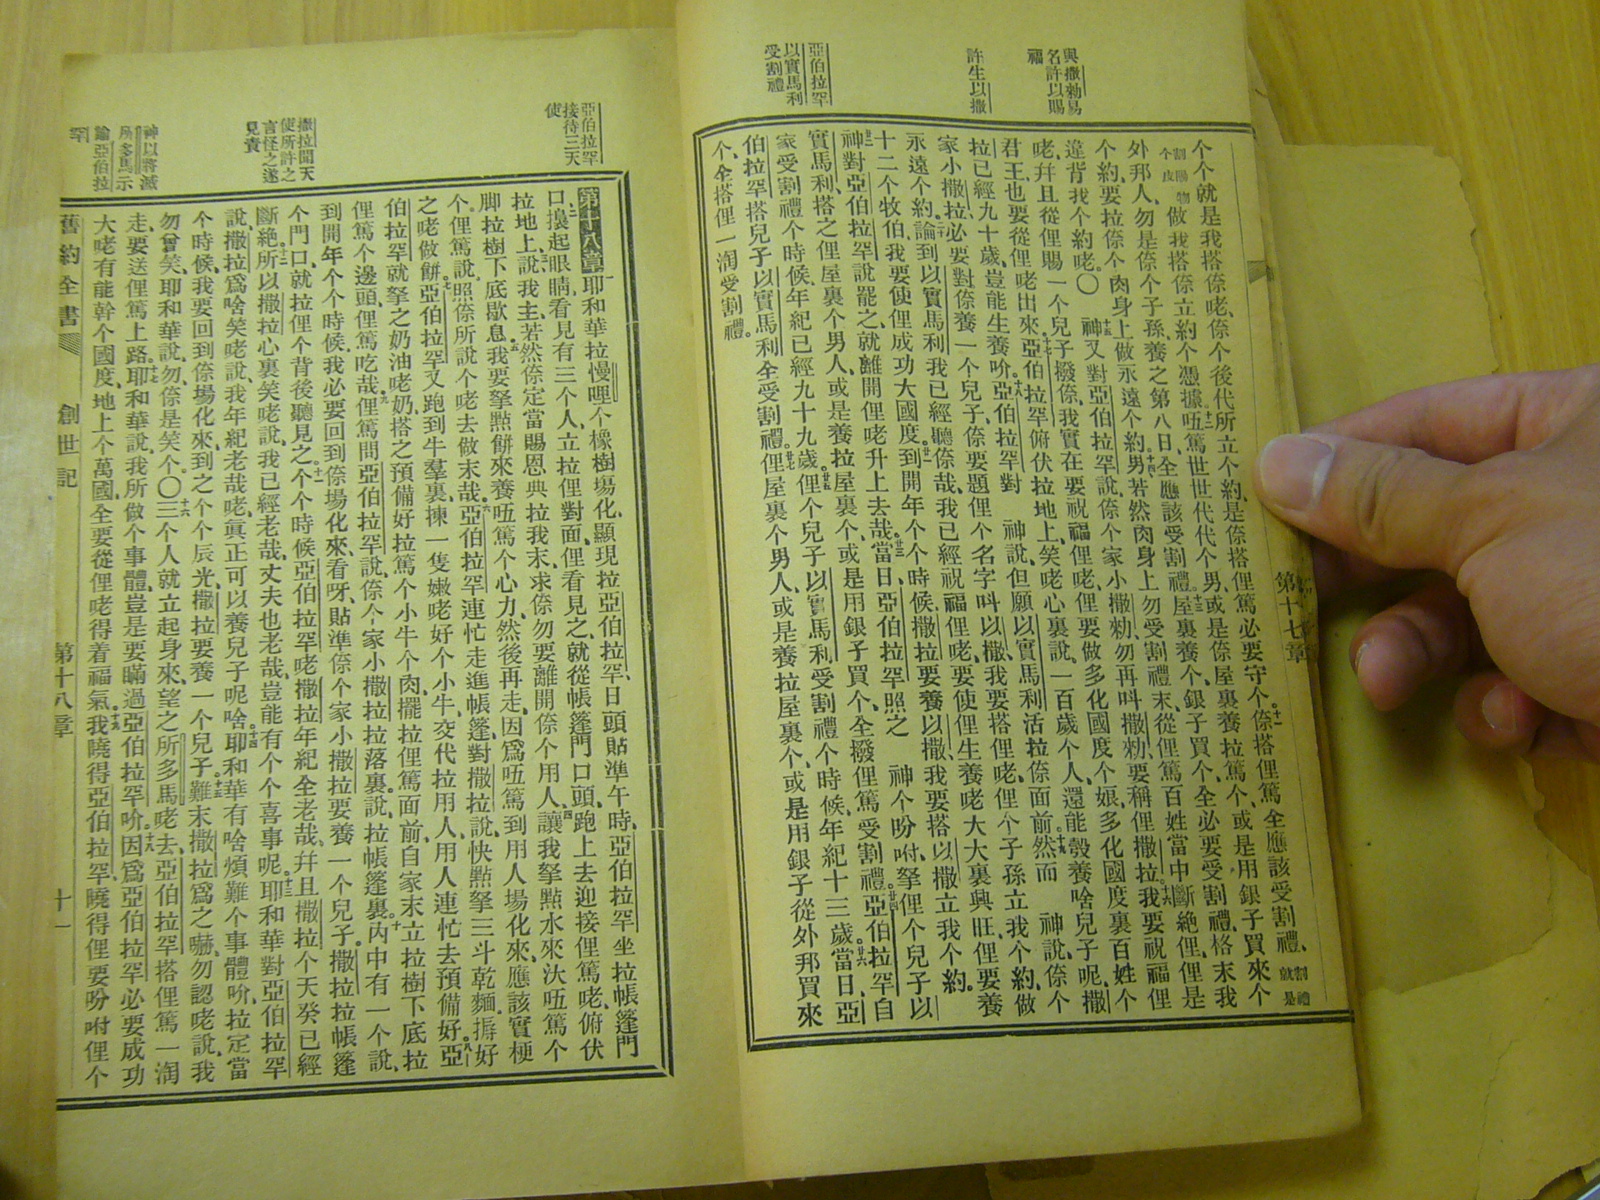 與撒勑易
名許以賜
福
許生以撒
亞伯拉罕
以實馬利
受割禮
第十七章
个个就是我搭倷咾倷个後代所立个約是倷搭俚篤必要守个十一倷搭俚篤全應該受割禮割禮就是
割陽物个皮做我搭倷立約个憑據十二伍篤世世代代个男或是倷屋裏養拉篤个或是用銀子買來个
外邦人勿是倷个子孫養之第八日全應該受割禮十三屋裏養个銀子買个全必要受割禮格末我
个約要拉倷个肉身上做永遠个約十四男若然肉身上勿受割禮末從俚篤百姓當中斷絕俚俚是
違背我个約咾〇十五神又對亞伯拉罕說倷个家小撒勑勿再呌撒勑要稱俚撒拉十六我要祝福俚
咾幷且從俚賜一个兒子撥倷我實在要祝福俚咾俚要做多化國度个娘多化國度裏百姓个
君王也要從俚咾出來十七亞伯拉罕俯伏拉地上笑咾心裏說一百歲个人還能彀養啥兒子呢撒
拉已經九十歲豈能生養吤十八亞伯拉罕對神說但願以實馬利活拉倷面前十九然而神說倷个
家小撒拉必要對倷養一个兒子倷要題俚个名字呌以撒我要搭俚咾俚个子孫立我个約做
永遠个約二十論到以實馬利我已經聽倷哉我已經祝福俚咾要使俚生養咾大大裏興旺俚要養
十二个牧伯我要使俚成功大國度廿一到開年个个時候撒拉要養以撒我要搭以撒立我个約
廿二神對亞伯拉罕說罷之就離開俚咾升上去哉廿三當日亞伯拉罕照之神个吩咐拏俚个兒子以
實馬利搭之俚屋裏个男人或是養拉屋裏个或是用銀子買个全撥俚篤受割禮廿四亞伯拉罕自
家受割禮个時候年紀已經九十九歲廿五俚个兒子以實馬利受割禮个時候年紀十三歲廿六當日亞
伯拉罕搭兒子以實馬利全受割禮廿七俚屋裏个男人或是養拉屋裏个或是用銀子從外邦買來
个全搭俚一淘受割禮
亞伯拉罕
接待三天
使
撒拉聞天
使所許之
言怪之遂
見責
神以將滅
所多馬示
諭亞伯拉
罕
第十八章一耶和華拉慢哩个橡樹塲化顯現拉亞伯拉罕日頭貼準午時亞伯拉罕坐拉帳篷門
口二擡起眼睛看見有三个人立拉俚對面俚看見之就從帳篷門口頭跑上去迎接俚篤咾俯伏
拉地上三說我主若然倷定當賜恩典拉我末求倷勿要離開倷个用人四讓我拏點水來汏伍篤个
脚拉樹下底歇息五我要拏點餅來養伍篤个心力然後再走因爲伍篤到用人塲化來應該實梗
个俚篤說照倷所說个咾去做末哉六亞伯拉罕連忙走進帳篷對撒拉說快點拏三斗乾麵搙好
之咾做餅七亞伯拉罕又跑到牛羣裏揀一隻嫩咾好个小牛交代拉用人用人連忙去預備好八亞
伯拉罕就拏之奶油咾奶搭之預備好拉篤个小牛个肉擺拉俚篤面前自家末立拉樹下底拉
俚篤个邊頭俚篤吃哉九俚篤問亞伯拉罕說倷个家小撒拉拉落裏說拉帳篷裏十內中有一个說
到開年个个時候我必要回到倷塲化來看呀貼準倷个家小撒拉要養一个兒子撒拉拉帳篷
个門口就拉俚个背後聽見之十一个个時候亞伯拉罕咾撒拉年紀全老哉幷且撒拉个天癸已經
斷絕十二所以撒拉心裏笑咾說我已經老哉丈夫也老哉豈能有个个喜事呢十三耶和華對亞伯拉罕
說撒拉爲啥笑咾說我年紀老哉咾眞正可以養兒子呢啥十四耶和華有啥煩難个事體吤拉定當
个時候我要回到倷塲化來到之个个辰光撒拉要養一个兒子十五難末撒拉爲之嚇勿認咾說我
勿曾笑耶和華說勿倷是笑个〇十六三个人就立起身來望之所多馬咾去亞伯拉罕搭俚篤一淘
走要送俚篤上路十七耶和華說我所做个事體豈是要瞞過亞伯拉罕吤十八因爲亞伯拉罕必要成功
大咾有能幹个國度地上个萬國全要從俚咾得着福氣十九我曉得亞伯拉罕曉得俚要吩咐俚个
舊約全書 創世記 第十八章 十一